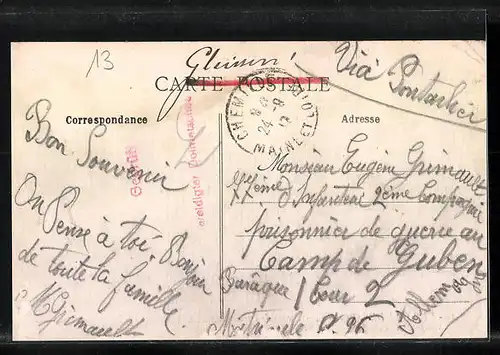 13
Gleismé
Via Pontarlier
CARTE POSTALE
Correspondance
Adresse
CHEMILLÉ
24 -8
MAINE-ET-LOIRE
Geprüft
Bon Souvenir
On Pense à toi Bonjour
de toute la famille
M Grimault
Monsieur Eugène Grimault
77ème d'Infanterie 2ème Compagnie
prisonnier de guerre au
Camp de Guben
Baraque 1 Cour 2
Allemagne
Matricule 96